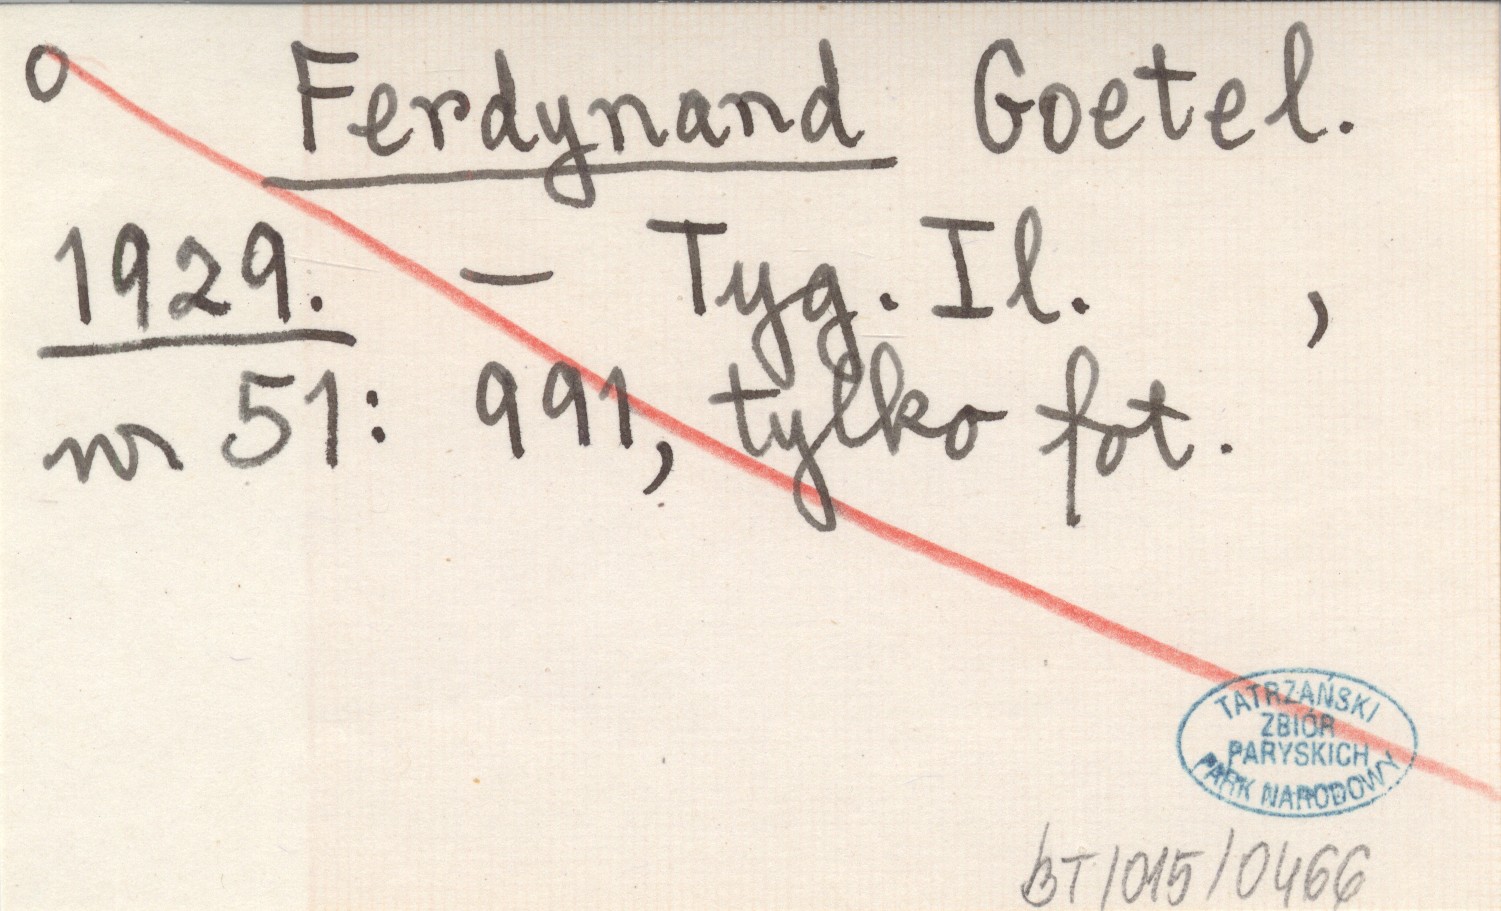 O Ferdynand Goetel.
1929. — Tyg. Il. ,
nr 51: 991, tylko fot.
TATRZAŃSKI
ZBIÓR
PARYSKICH
PARK NARODOWY
BT/015/0466